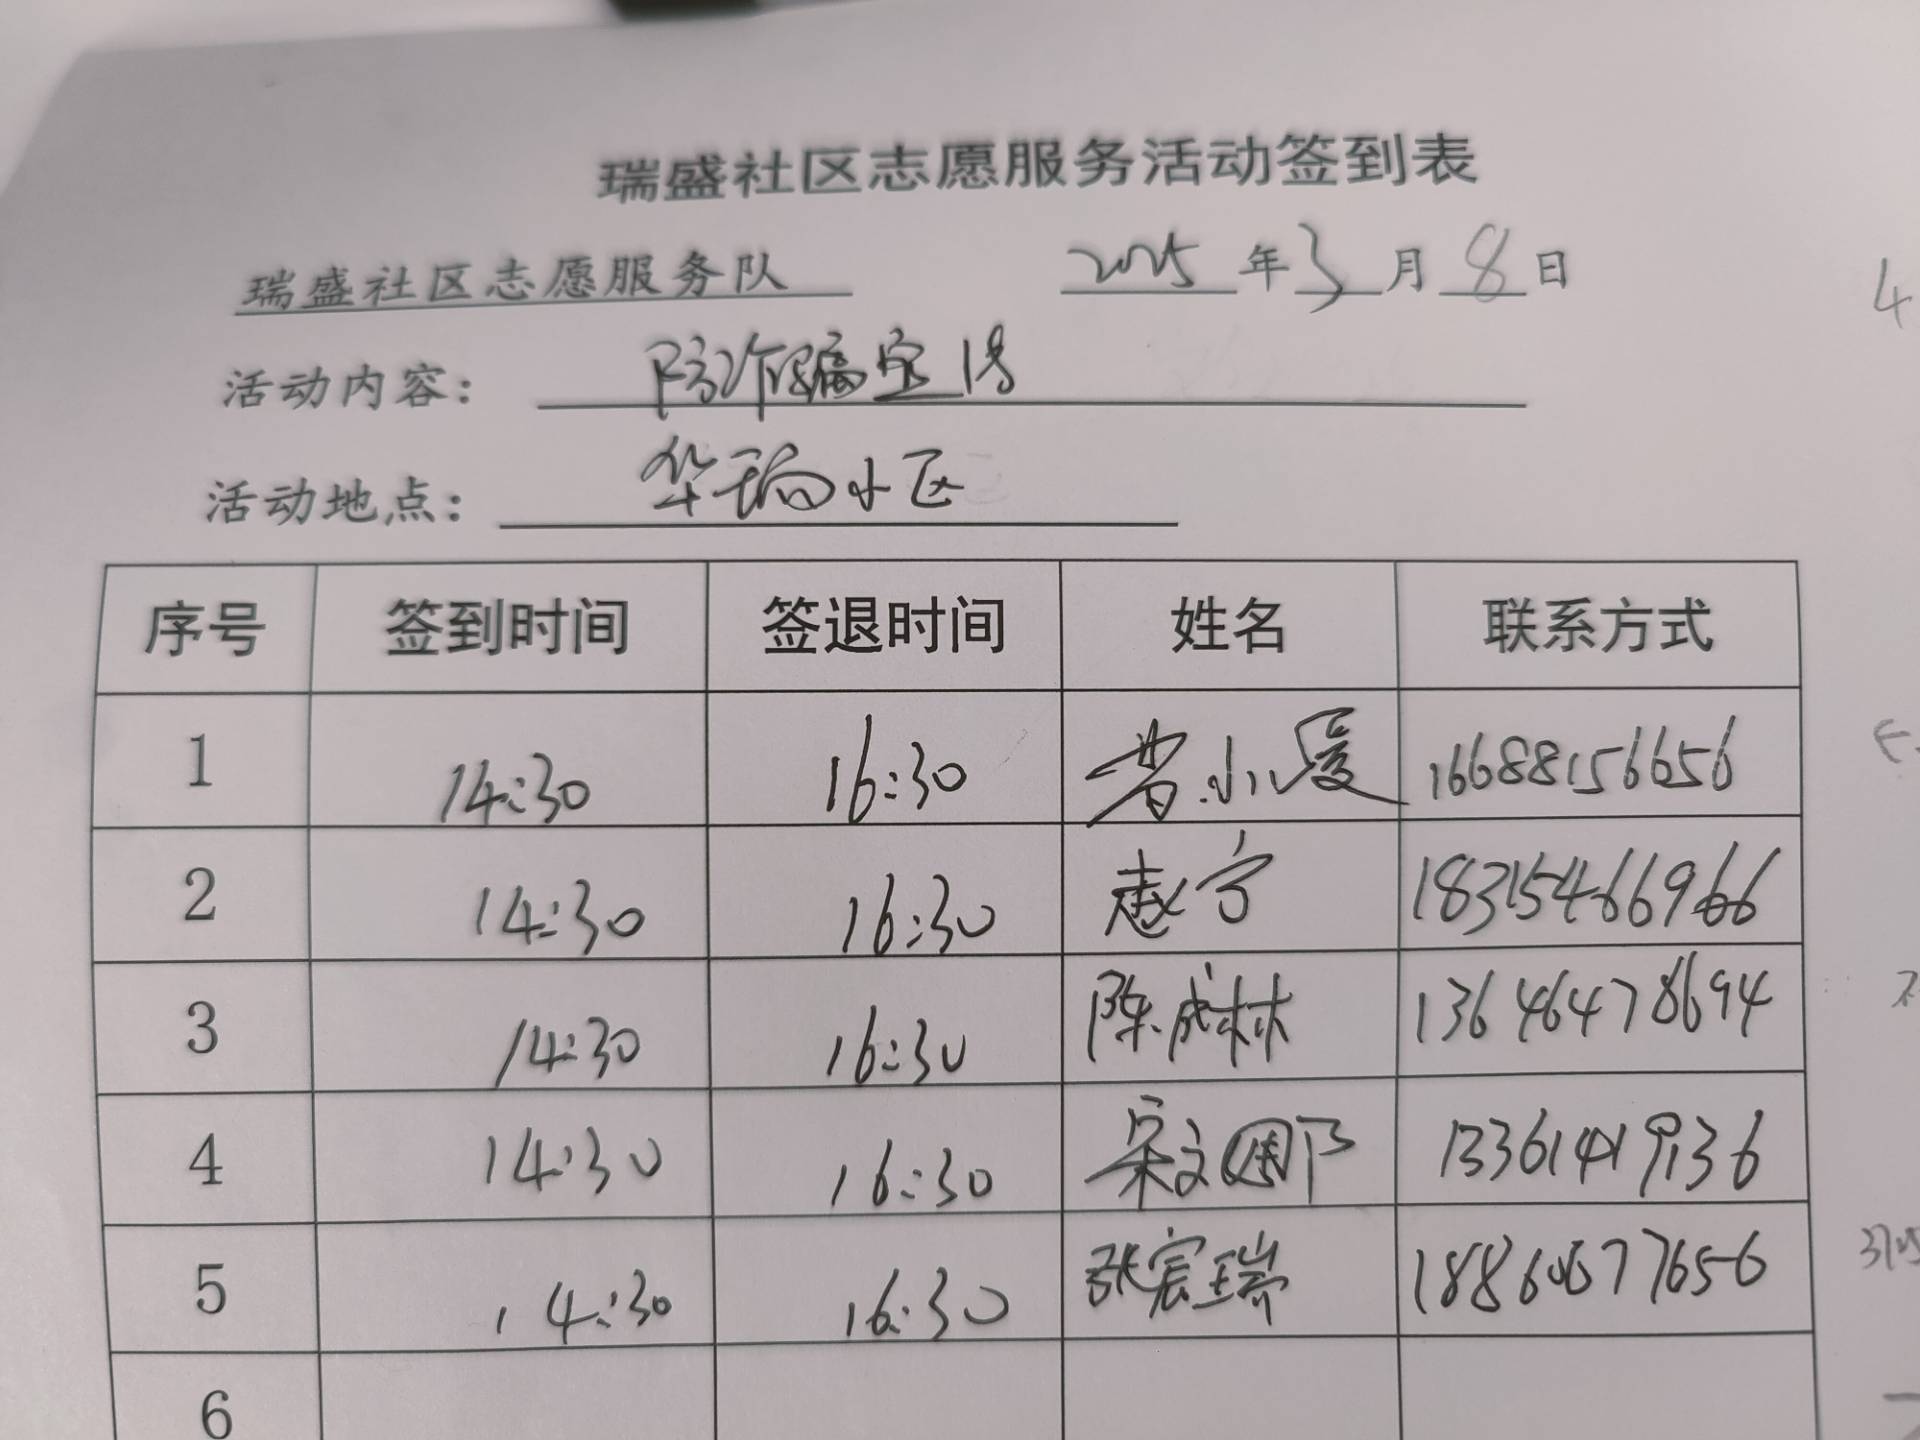 瑞盛社区志愿服务活动签到表
瑞盛社区志愿服务队 2025年3月8日
活动内容： 防诈骗宣传
活动地点： 华瑞小区
序号 签到时间 签退时间 姓名 联系方式
1 14:30 16:30 曹小爱 16688156656
2 14:30 16:30 赵宁 18315466966
3 14:30 16:30 陈成林 13646478694
4 14:30 16:30 宋文 13361419136
5 14:30 16:30 张宸瑞 18860677656
6